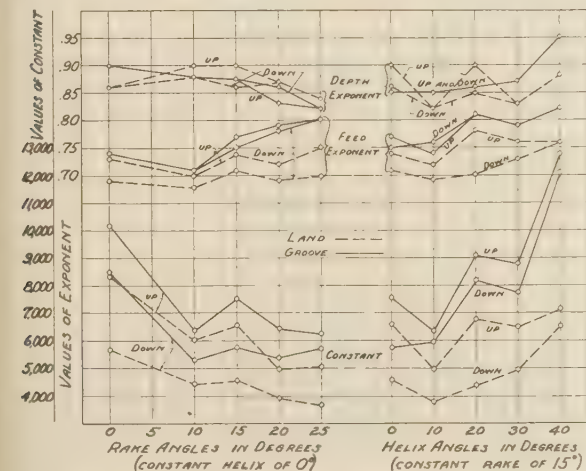 VALUES OF CONSTANT
VALUES OF EXPONENT
.95
.90
.85
.80
.75
.70
13,000
12,000
11,000
10,000
9,000
8,000
7,000
6,000
5,000
4,000
UP
DOWN
UP
DEPTH
EXPONENT
UP
DOWN
FEED
EXPONENT
UP
UP AND DOWN
DOWN
DOWN
UP
DOWN
LAND
GROOVE
UP
DOWN
CONSTANT
UP
DOWN
UP
DOWN
0 5 10 15 20 25
RAKE ANGLES IN DEGREES
(CONSTANT HELIX OF 0°)
0 10 20 30 40
HELIX ANGLES IN DEGREES
(CONSTANT RAKE OF 15°)